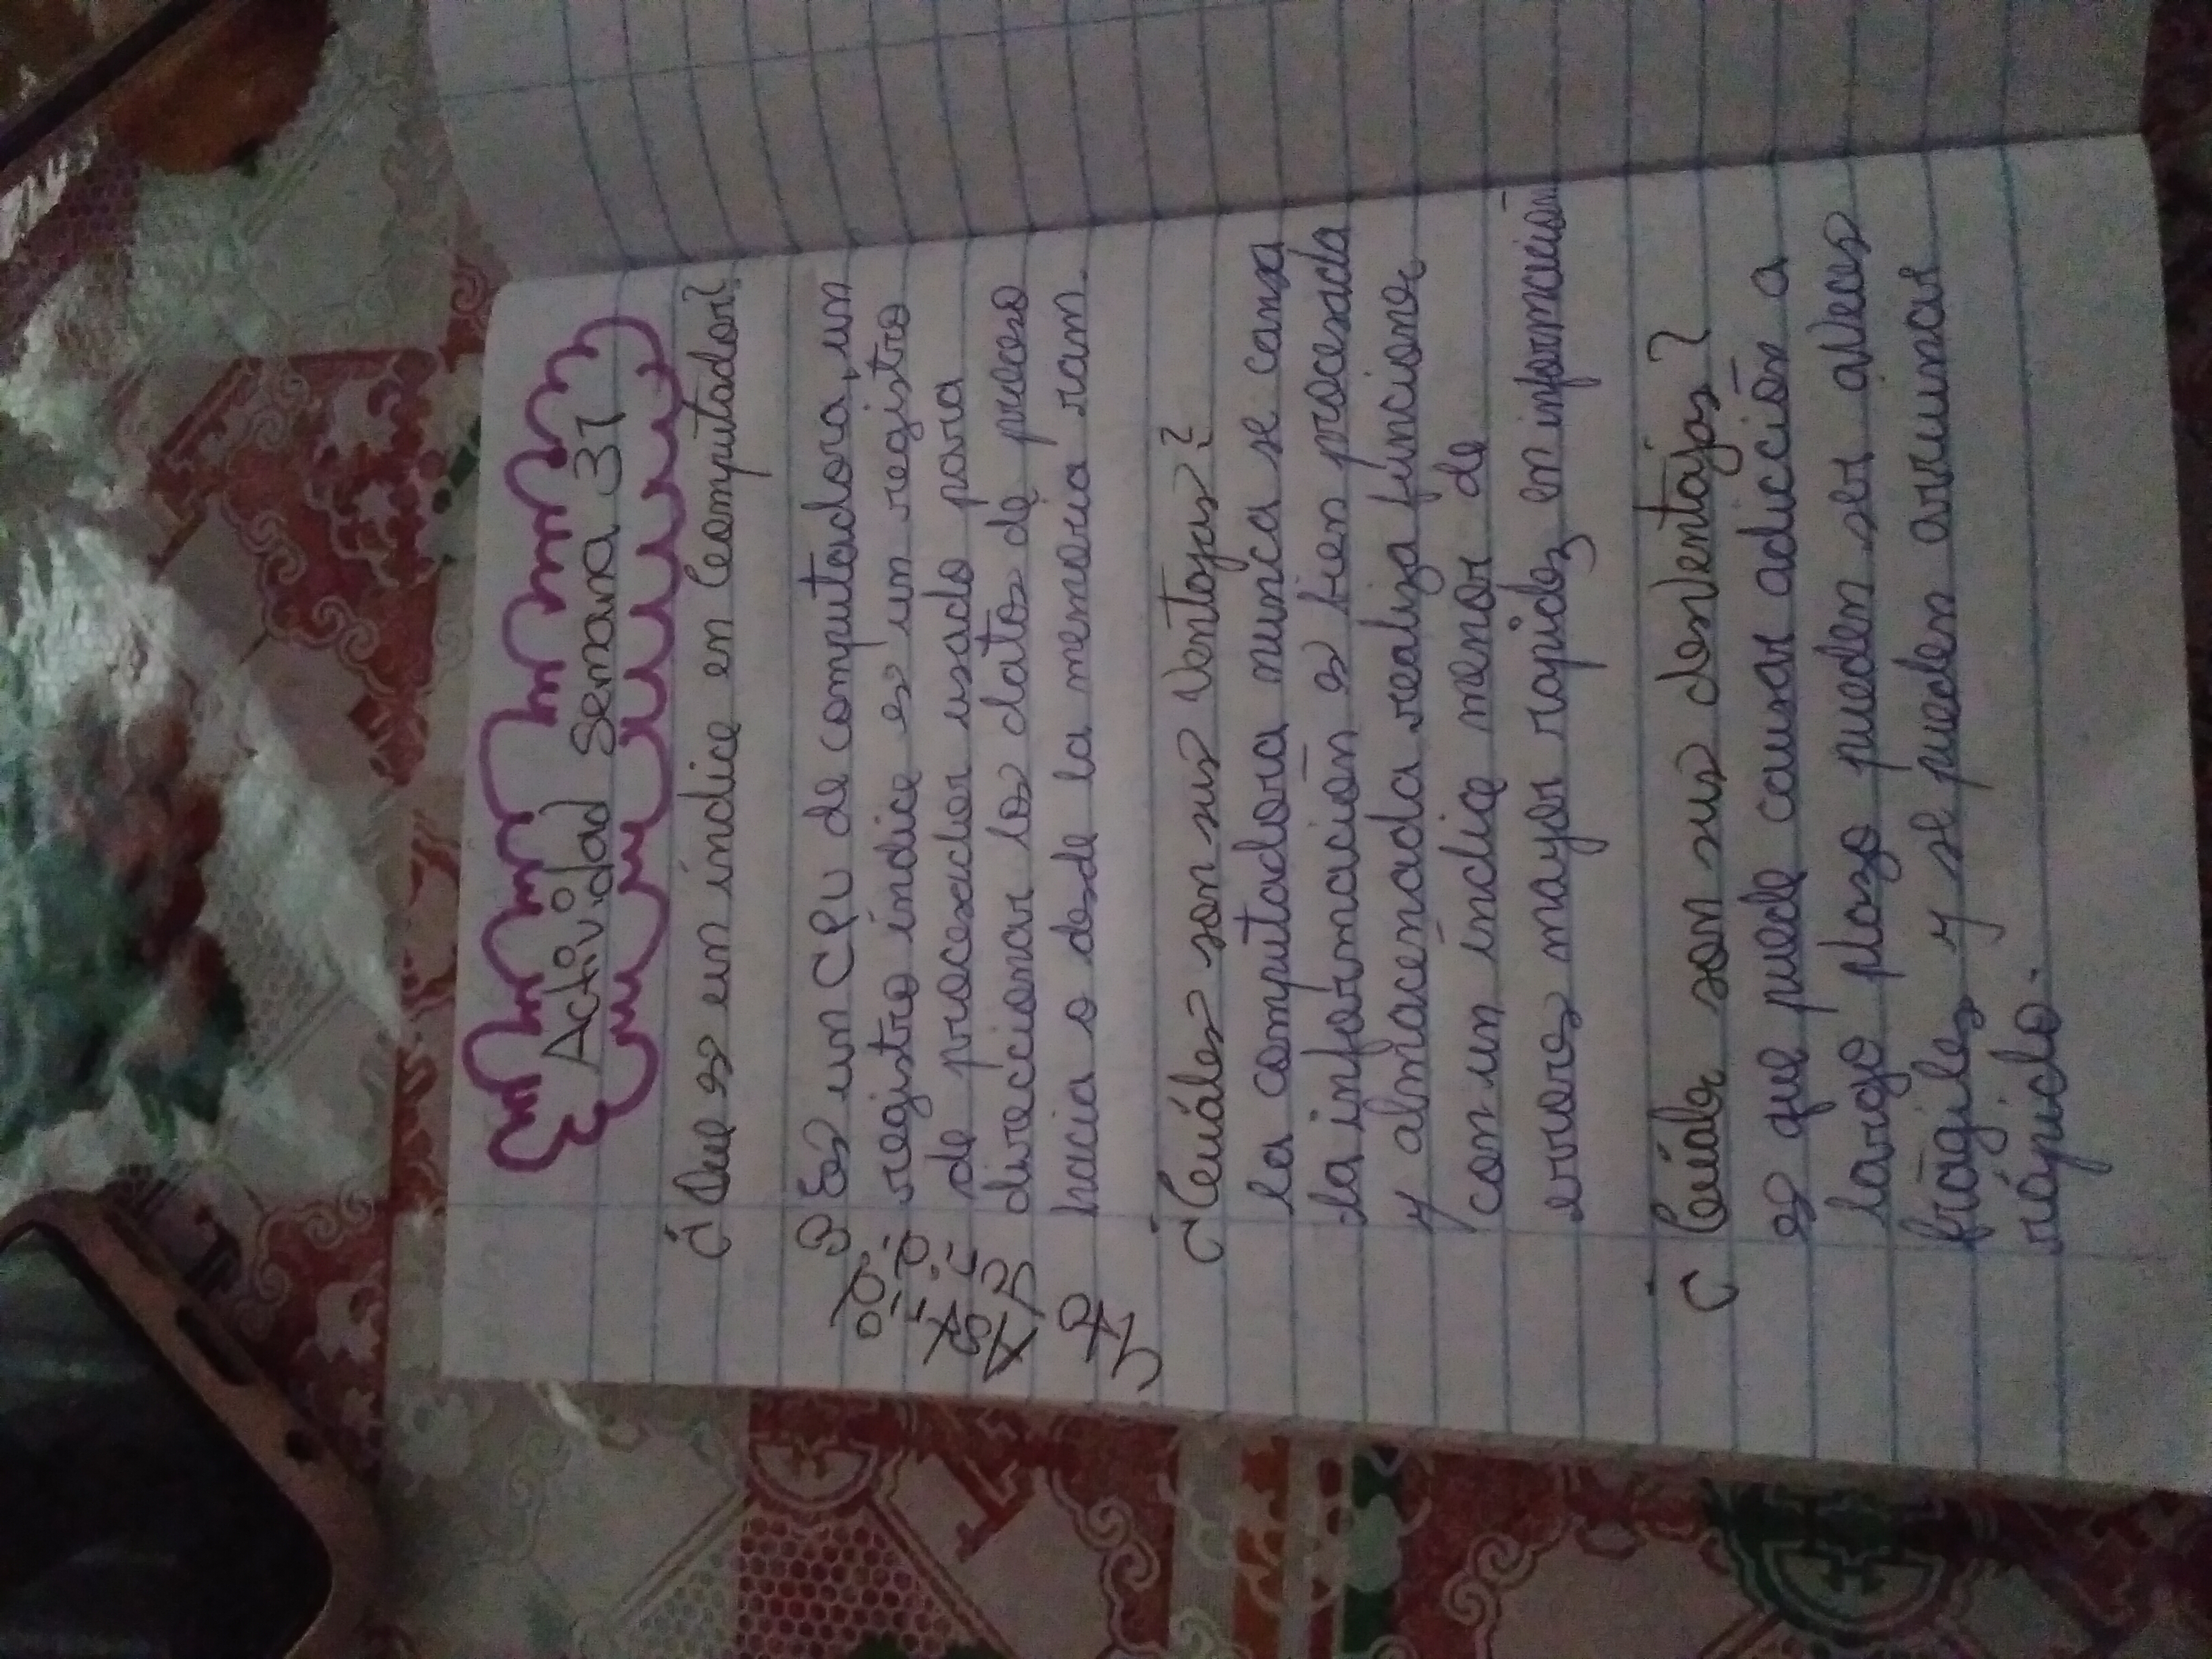 Actividad Semana 31
¿Que es un índice en Computador?
Es un CPU de computadora, un
registro índice es un registro
de procesador usado para
direccionar los datos de proceso
hacia o desde la memoria ram.
¿Cuáles son sus Ventajas?
la computadora nunca se cansa
la información es bien procesada
y almacenada realiza funciones
con un índice menor de
errores mayor rapidez en información
¿Cuáles son sus desventajas?
es que puede causar adicción a
largo plazo pueden ser aveces
frágiles y se pueden arruinar
rápido.